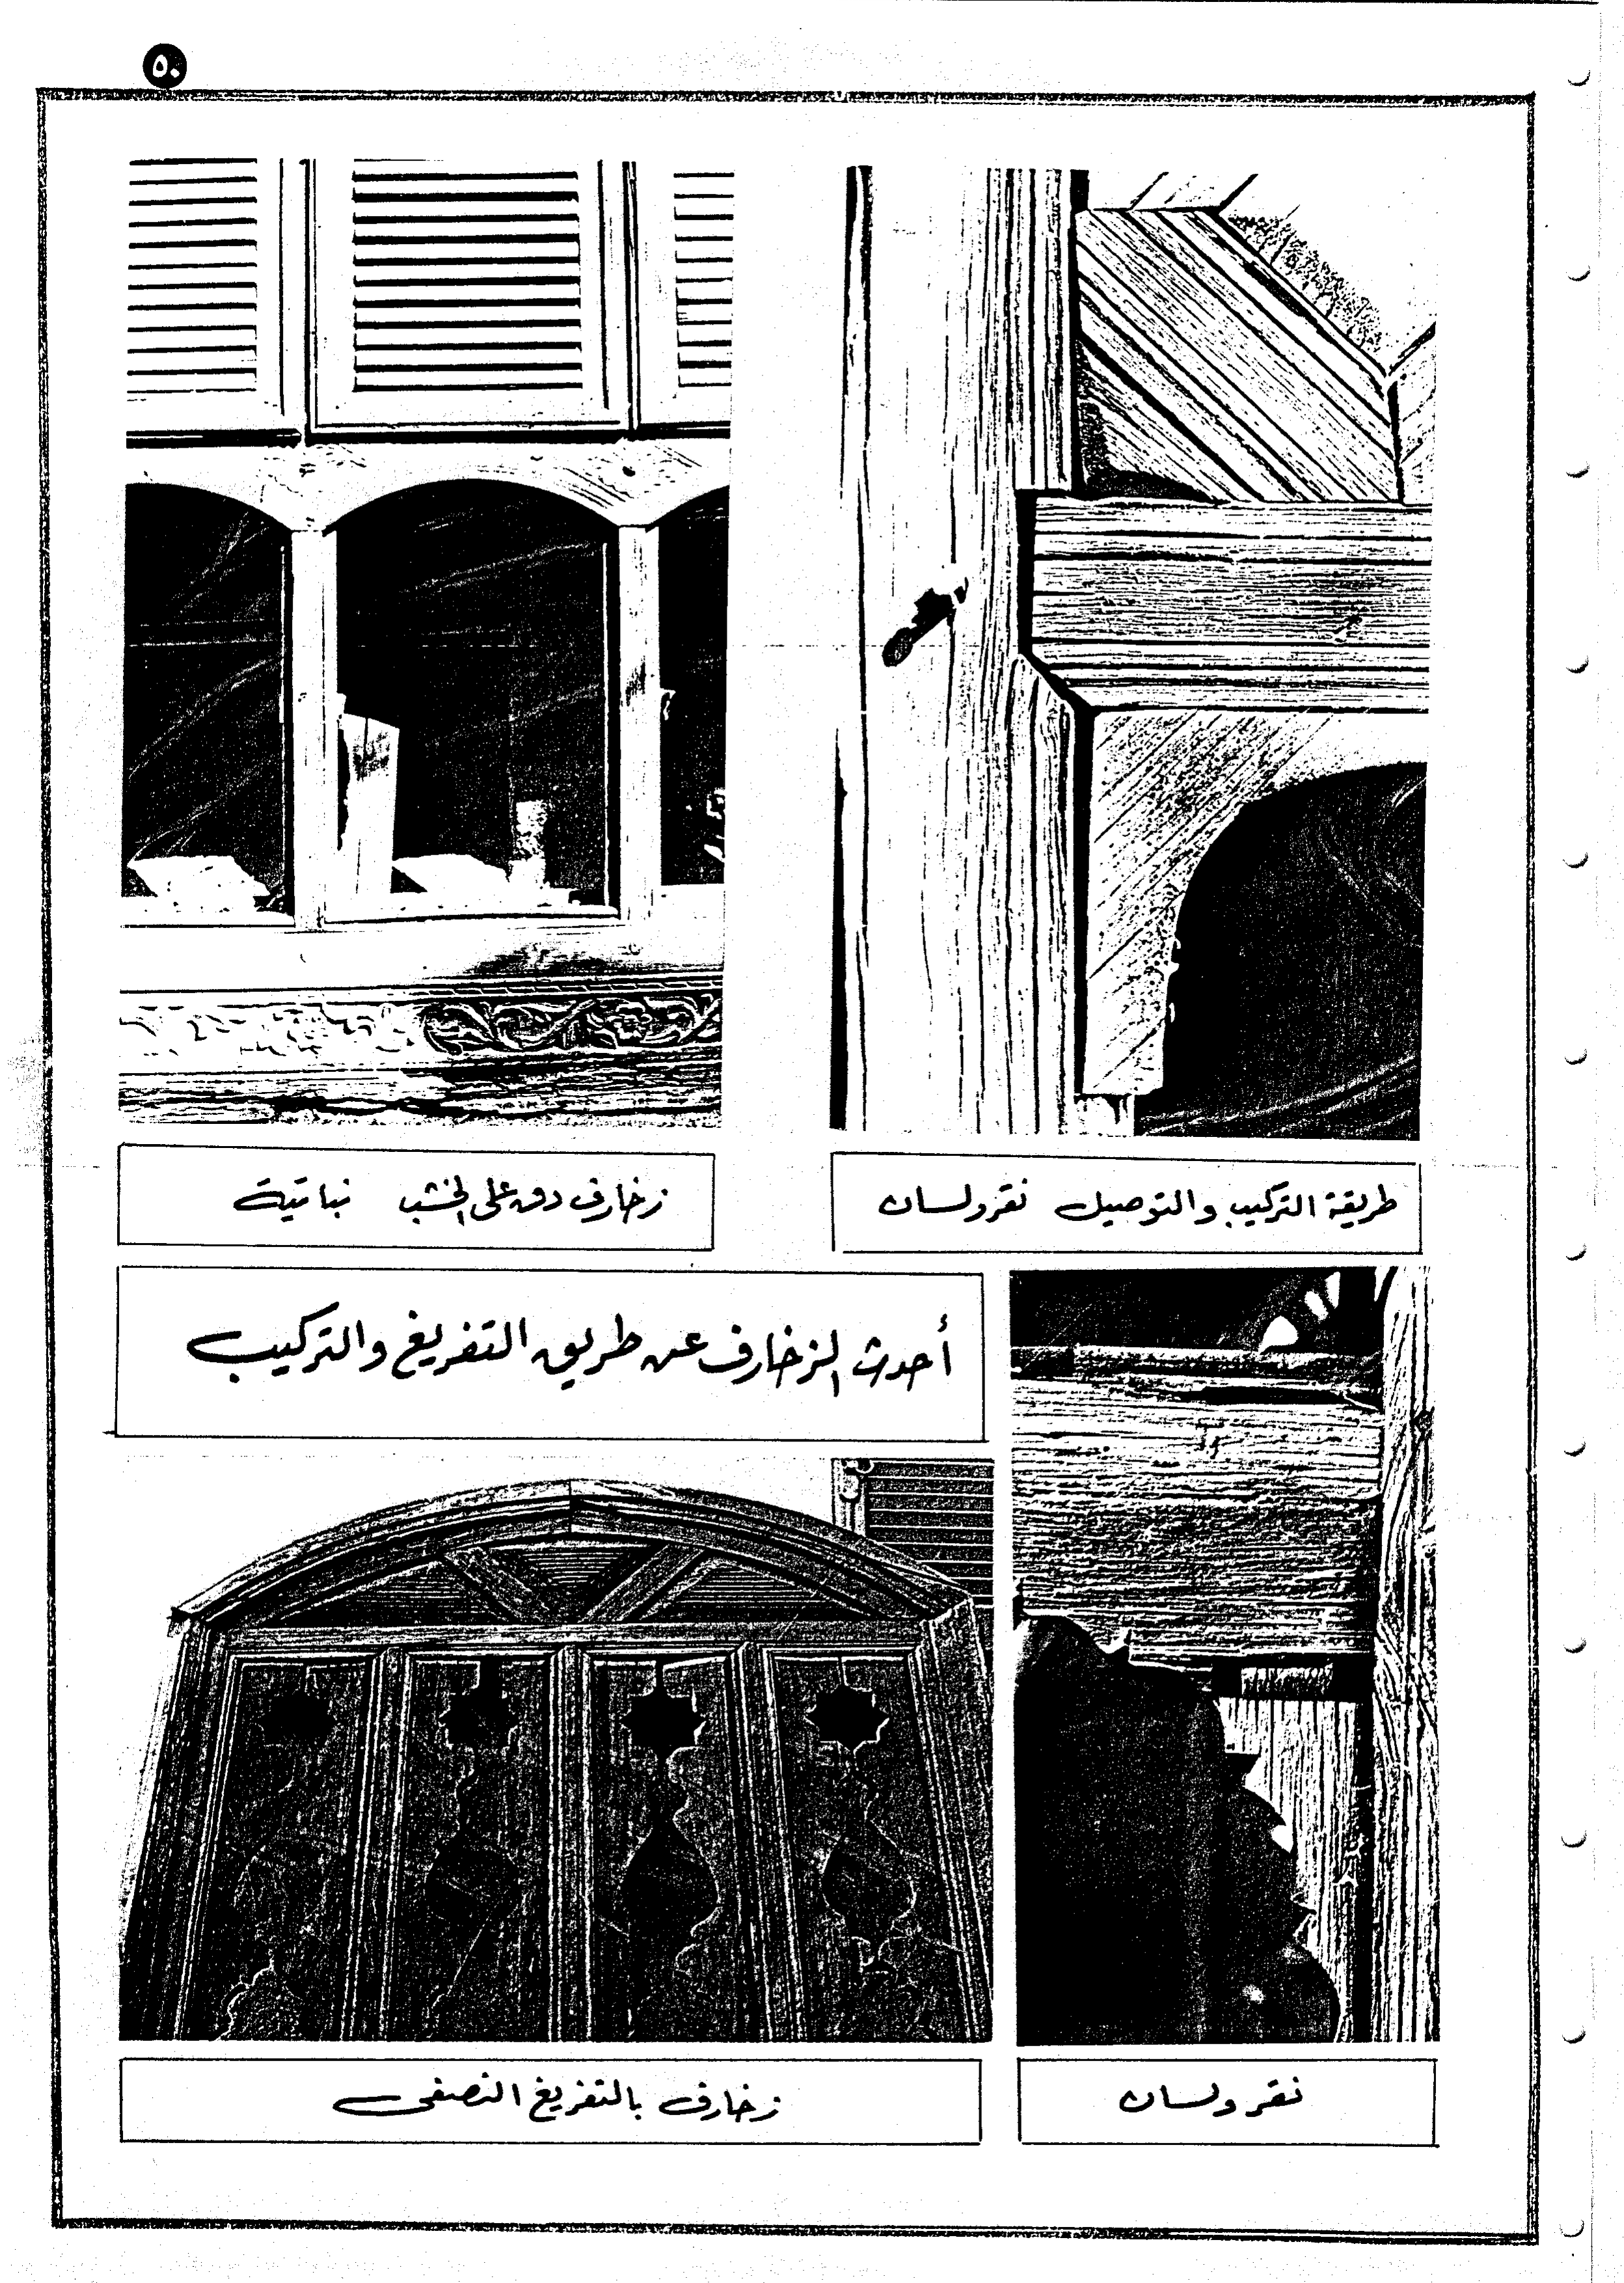 ٥٠
طريقة التركيب والتوصيل نقر ولسان
زخارف دق على الخشب نباتية
أحدث الزخارف عن طريق التفريغ والتركيب
زخارف بالتفريغ النصفى
نقر ولسان